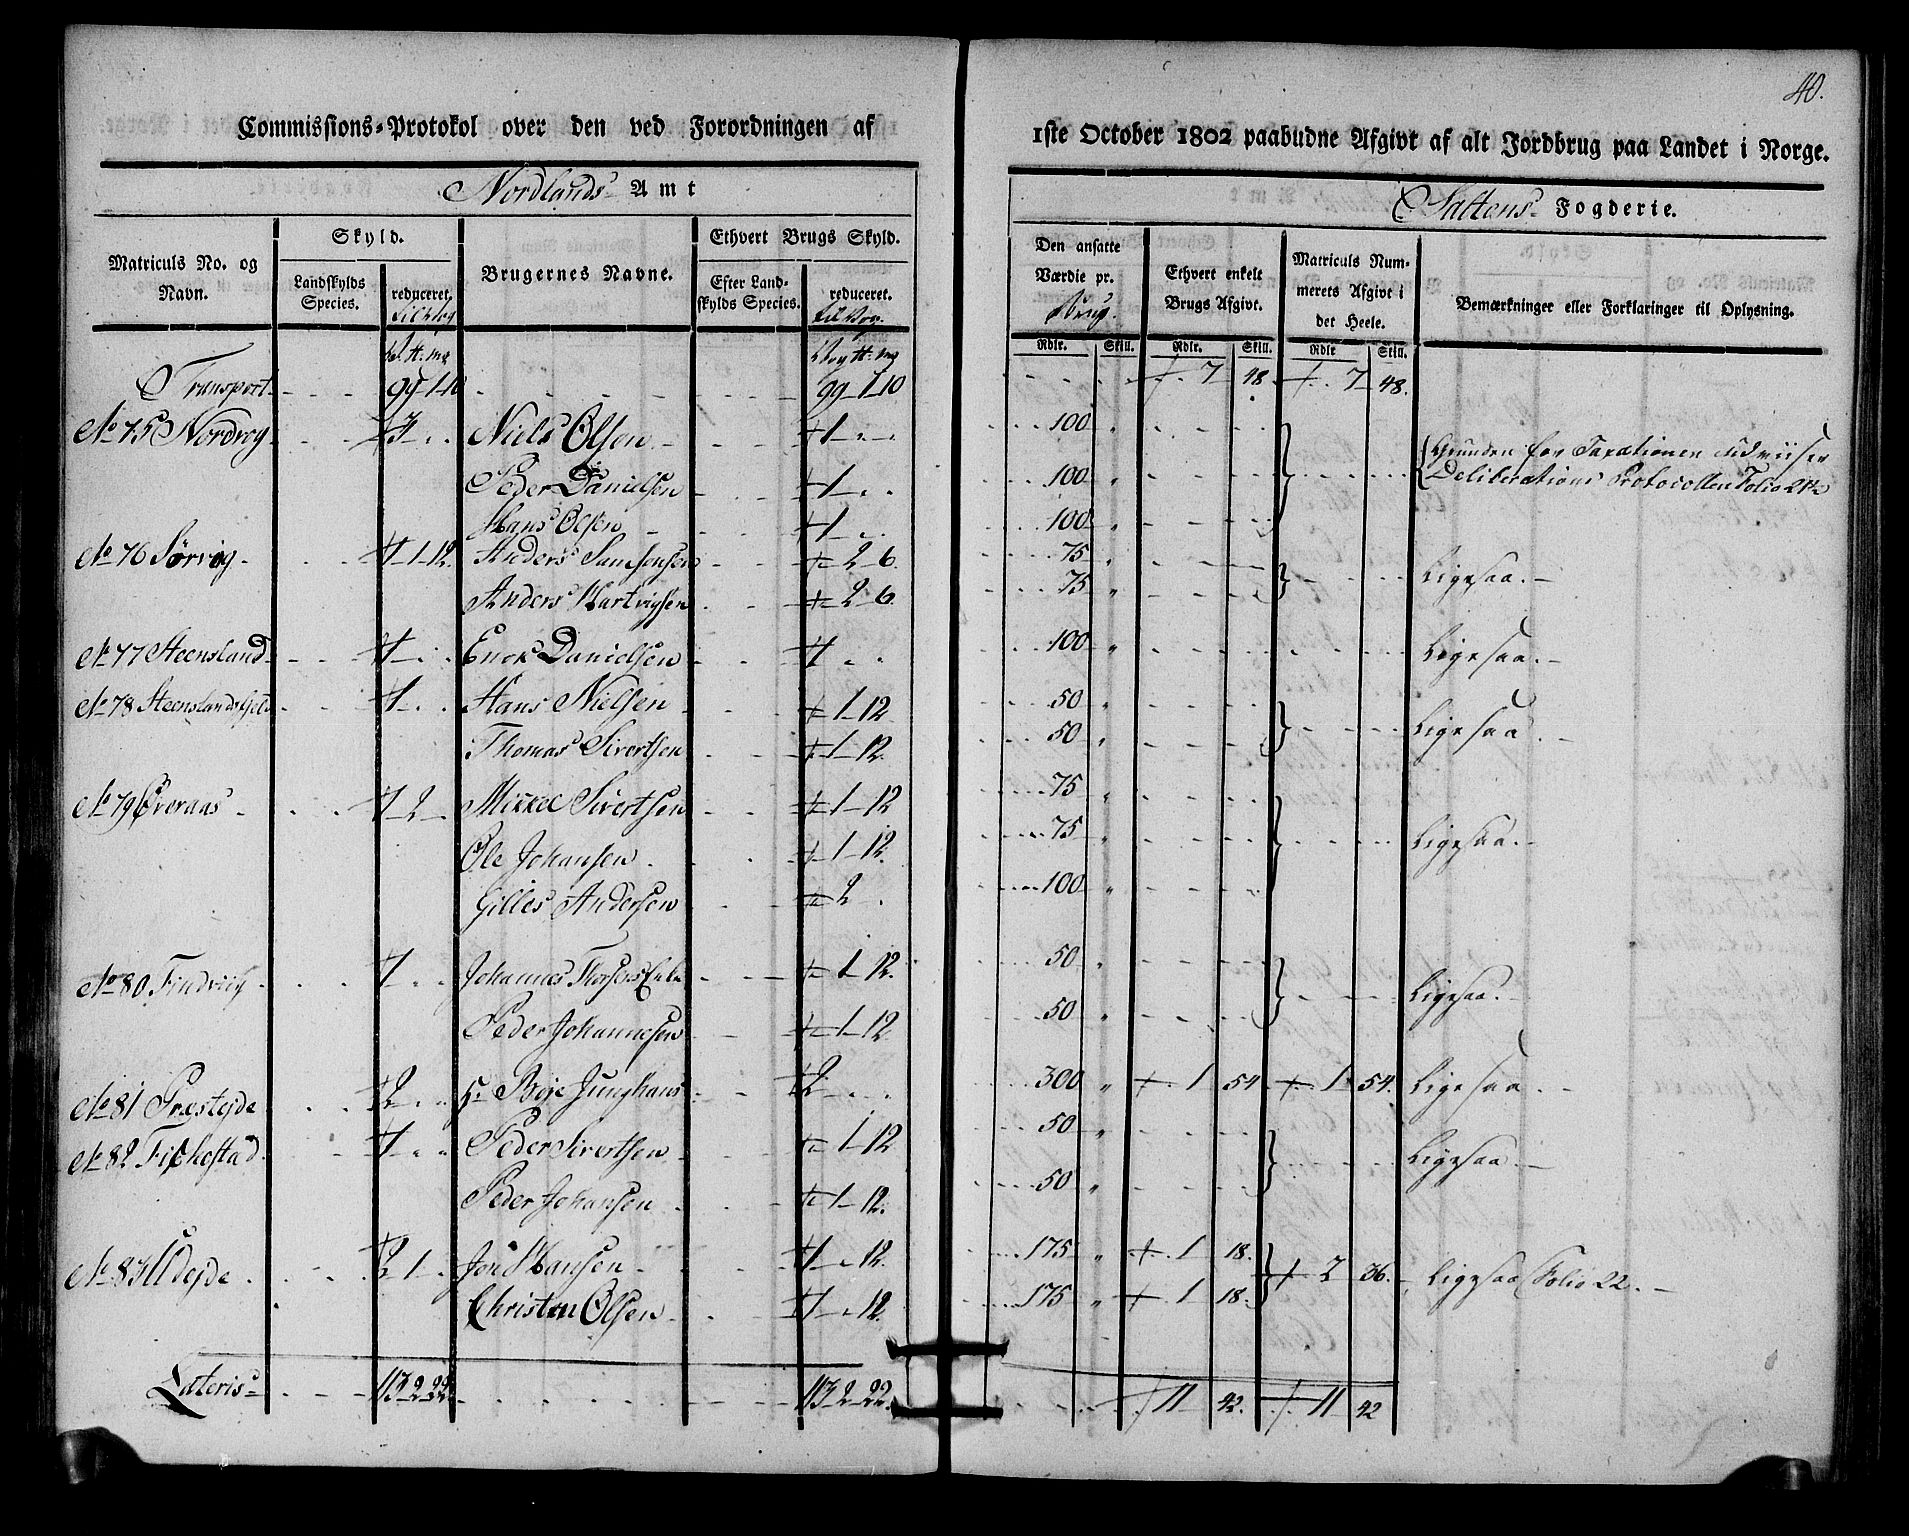 40.
Commissions-Protokol over den ved Forordningen af 1ste October 1802 paabudne Afgivt af alt Jordbrug paa Landet i Norge.
Nordlands Amt Saltens Fogderie.
Matriculs No. og Navn. Skyld. Landskylds Species. reduceret. Brugernes Navne. Ethvert Brugs Skyld. Efter Landskylds Species. reduceret. Den ansatte Værdie pr. Brug. Ethvert enkelt Brugs Afgivt. Matriculs Nummerets Afgivt i det Heele. Bemærkninger eller Forklaringer til Oplysning.
Rdlr. Skill. Rdlr. Skill. Rdlr Skill.
Transport 99 1 10 99 1 10 7 48 7 48.
No 75 Nordvog 3 Niels Olsen 1 100 Grunden for Taxationen udviiser
Peder Danielsen 1 100 Deliberations Protocollen Folio 21
Hans Olsen 1 100
No 76 Sørvog 1 1 12. Anders Samsonsen 2 6. 75 Ligesaa.
Anders Hartvigsen 2 6. 75
No 77 Steensland 1 Enok Danielsen 1 100 Ligesaa.
No 78 Steenslandsfjeld 1 Hans Nielsen 1 12 50 Ligesaa.
Thomas Sivertsen 1 12. 50
No 79 Øveraas 1 2 Mikkel Sivertsen 1 12 75 Ligesaa.
Ole Johansen 1 12. 75
Gilles Andersen 2 100
No 80 Findviig 1 Johannes Thorsens Enke 1 12. 50 Ligesaa.
Peder Johannesen 1 12. 50
No 81 Præstejde 2 Hr Boje Junghans 2 300 1 54 1 54. Ligesaa.
No 82 Fiskestad 1 Peder Sivertsen 1 12 50 Ligesaa.
Peder Johansen 1 12. 50
No 83 Udejde 2 1 Jon Hansen 1 12. 175 1 18. 2 36. Ligesaa Folio 22.
Christen Olsen 1 12. 175 1 18.
Lateris 113 2 22. 113 2 22. 11 42. 11 42